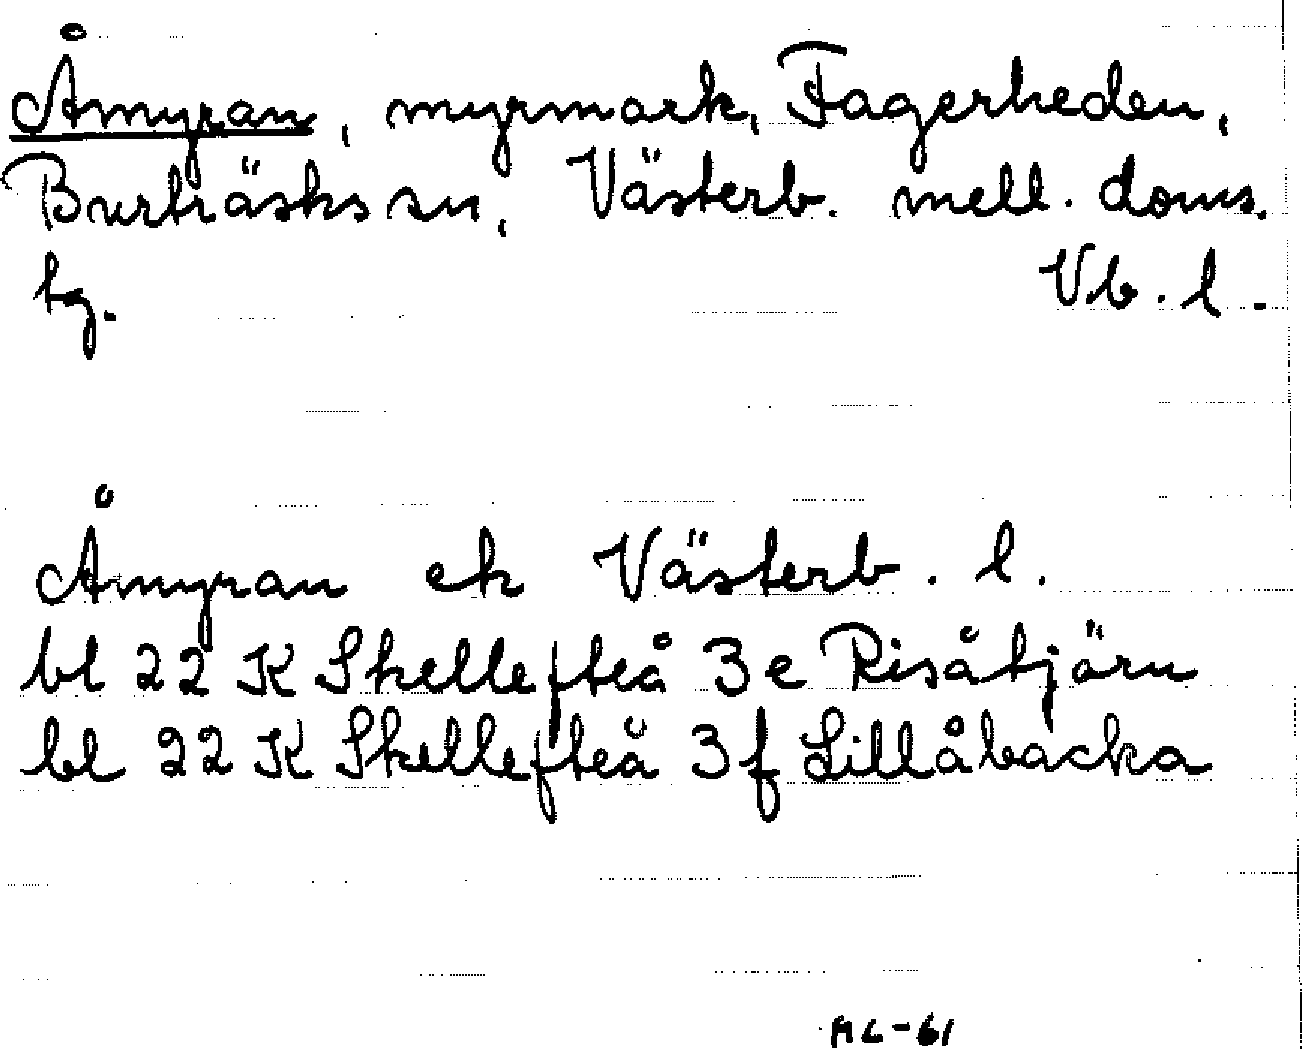 Åmyran, myrmark, Fagerheden,
Burträsks sn, Västerb. mell. doms.
tg. Vb. l.
Åmyran ek Västerb. l.
bl 22 K Skellefteå 3e Risåtjärn
bl 22 K Skellefteå 3f Lillåbacka
AC-61